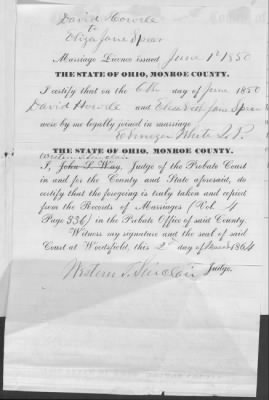 David Howde
to
Eliza Jane Spear
Marriage Licence issued June 1st 1850
THE STATE OF OHIO, MONROE COUNTY.
I certify that on the 6th day of June 1850
David Howde and Elizabeth Jane Spear
were by me legally joined in marriage
Ebenezer White J.P.
THE STATE OF OHIO, MONROE COUNTY.
I, John S. Way, Judge of the Probate Court
in and for the County and State aforesaid, do
certify that the foregoing is truly taken and copied
from the Records of Marriages (Vol. 4
Page 336) in the Probate Office of said County.
Witness my signature and the seal of said
Court at Woodsfield, this 2nd day of 1864
Sinclair Judge.